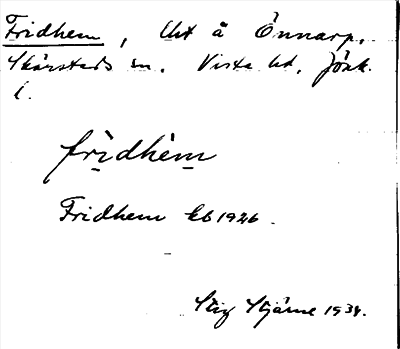 Fridhem, lht å Önnarp,
Skärstads sn. Vista hd. Jönk.
l.
fridhem
Fridhem kb 1926.
Stig Stjärne 1934.